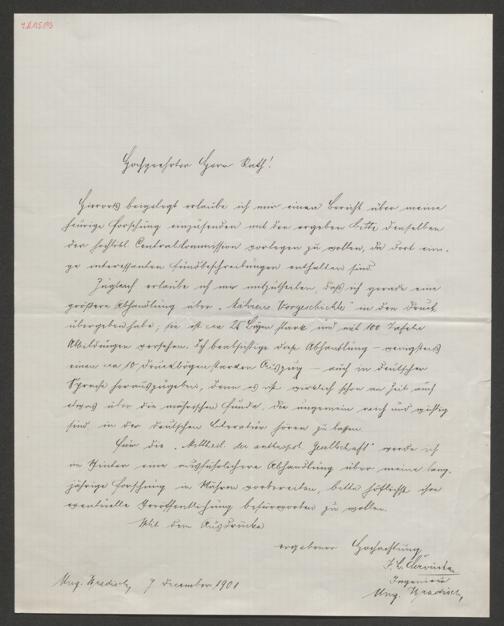 Hochgeehrter Herr Rath!
Hierorts beigelegt erlaube ich mir einen Bericht über meine
heurige Forschung einzusenden mit der ergeben Bitte denselben
der hochlöbl. Centralcommission vorlegen zu wollen, da dort eini-
ge interessanten Fundbeschreibungen enthalten sind.
Zugleich erlaube ich mir mitzutheilen, daß ich gerade eine
größere Abhandlung über „Mährens Vorgeschichte" in den Druck
übergeben habe; sie ist ca 25 Bogen stark und mit 100 Tafeln
Abbildungen versehen. Ich beabsichtige diese Abhandlung – wenigstens
einen ca 10 Druckbogen starken Auszug – auch in deutscher
Sprache herauszugeben, denn es ist wirklich schon an Zeit auch
etwas über die mährischen Funde, die ungemein reich und wichtig
sind in der deutschen Literatur hören zu laßen.
Für die „Mittheil. der anthropol. Gesellschaft" werde ich
im Winter eine ausführlichere Abhandlung über meine lang-
jährige Forschung in Mähren vorbereiten, bitte höflichst ihre
eventuelle Veröffentlichung befürworten zu wollen.
Mit dem Ausdrucke
ergebener Hochachtung
I. L. Červinka
Ingenieur
Ung. Hradisch,
Ung. Hradisch, 7 December 1901